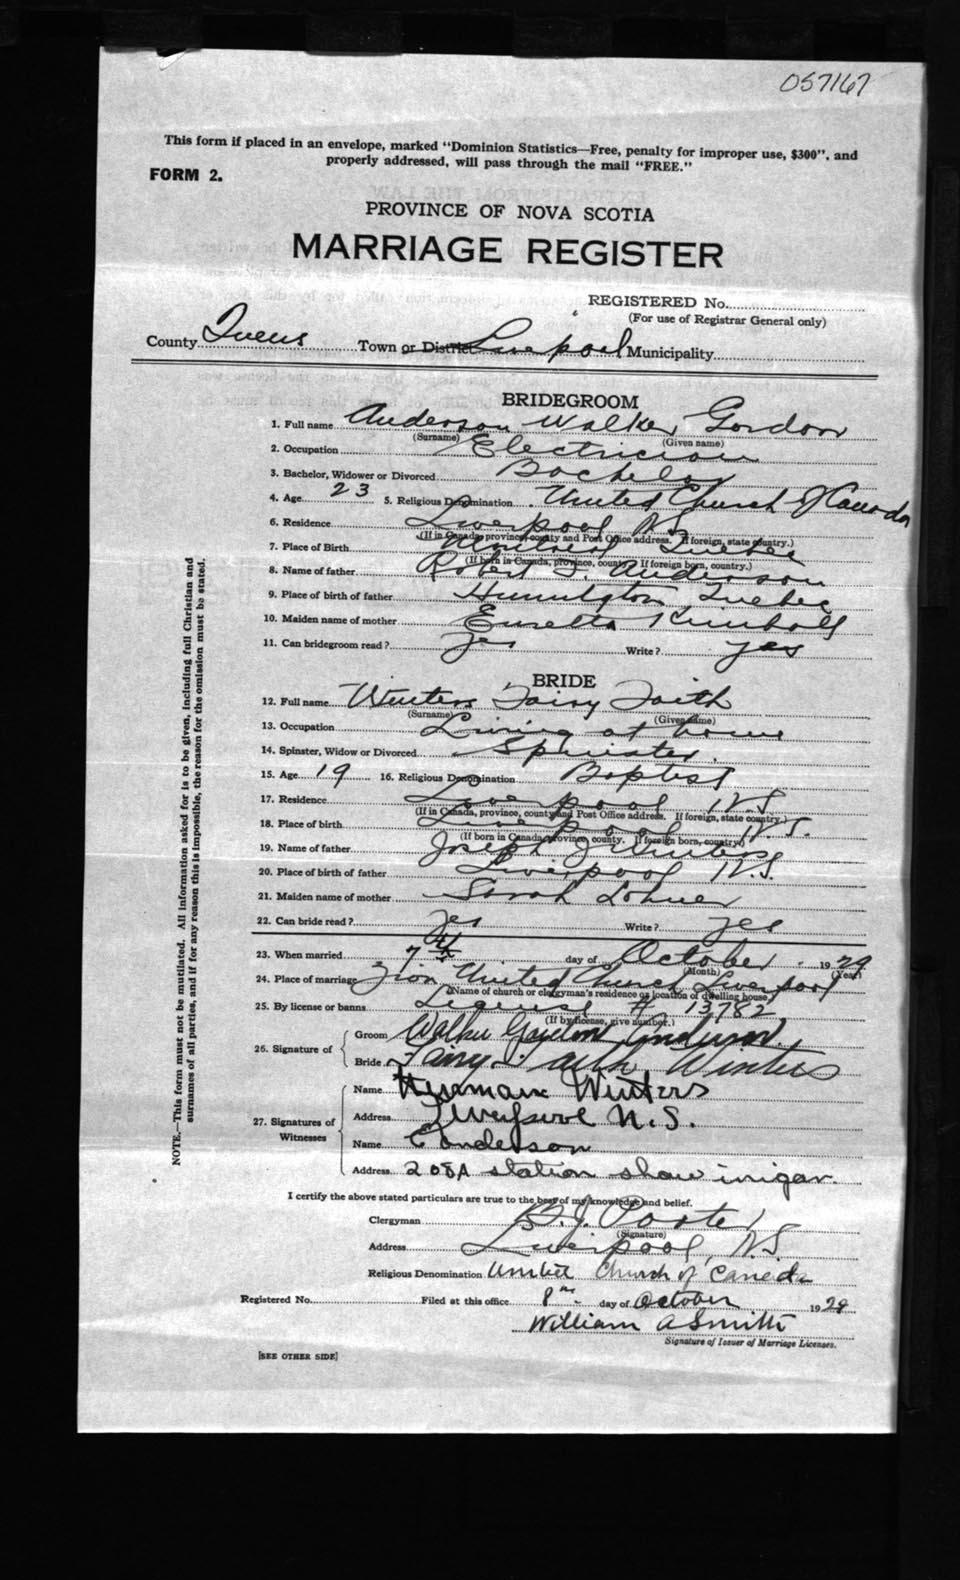 057167
This form if placed in an envelope, marked "Dominion Statistics—Free, penalty for improper use, $300", and
properly addressed, will pass through the mail "FREE."
FORM 2.
PROVINCE OF NOVA SCOTIA
MARRIAGE REGISTER
REGISTERED No.
(For use of Registrar General only)
County Queens Town or District Liverpool Municipality
BRIDEGROOM
1. Full name Anderson Walker Gordon
(Surname) (Given name)
2. Occupation Electrician
3. Bachelor, Widower or Divorced Bachelor
4. Age 23 5. Religious Denomination United Church of Canada
6. Residence Liverpool N.S.
(If in Canada, province, county and Post Office address. If foreign, state country.)
7. Place of Birth Montreal Quebec
(If born in Canada, province, county. If foreign born, country.)
8. Name of father Robert J. Anderson
9. Place of birth of father Quebec
10. Maiden name of mother Kimball
11. Can bridegroom read? yes Write? yes
BRIDE
12. Full name Winters Fairy Faith
(Surname) (Given name)
13. Occupation Living at home
14. Spinster, Widow or Divorced Spinster
15. Age 19 16. Religious Denomination Baptist
17. Residence Liverpool N.S.
(If in Canada, province, county and Post Office address. If foreign, state country.)
18. Place of birth Liverpool N.S.
(If born in Canada, province, county. If foreign born, country.)
19. Name of father Joseph J Winters
20. Place of birth of father Liverpool N.S.
21. Maiden name of mother Sarah Lohnes
22. Can bride read? yes Write? yes
23. When married 7th day of October 1929
(Month) (Year)
24. Place of marriage Zion United Church Liverpool
(Name of church or clergyman's residence or location of dwelling house)
25. By license or banns License # 13782
(If by license, give number.)
26. Signature of Groom Walker Gordon Anderson
Bride Fairy Faith Winters
27. Signatures of Witnesses Name Herman Winters
Address Liverpool N.S.
Name E Anderson
Address 208A station shawinigan.
I certify the above stated particulars are true to the best of my knowledge and belief.
Clergyman B. J. Porter
(Signature)
Address Liverpool, N.S.
Religious Denomination United Church of Canada
Registered No. Filed at this office 8th day of October 1929
William A Smith
Signature of Issuer of Marriage Licenses.
[SEE OTHER SIDE]
NOTE.—This form must not be mutilated. All information asked for is to be given, including full Christian and
surnames of all parties, and if for any reason this is impossible, the reason for the omission must be stated.